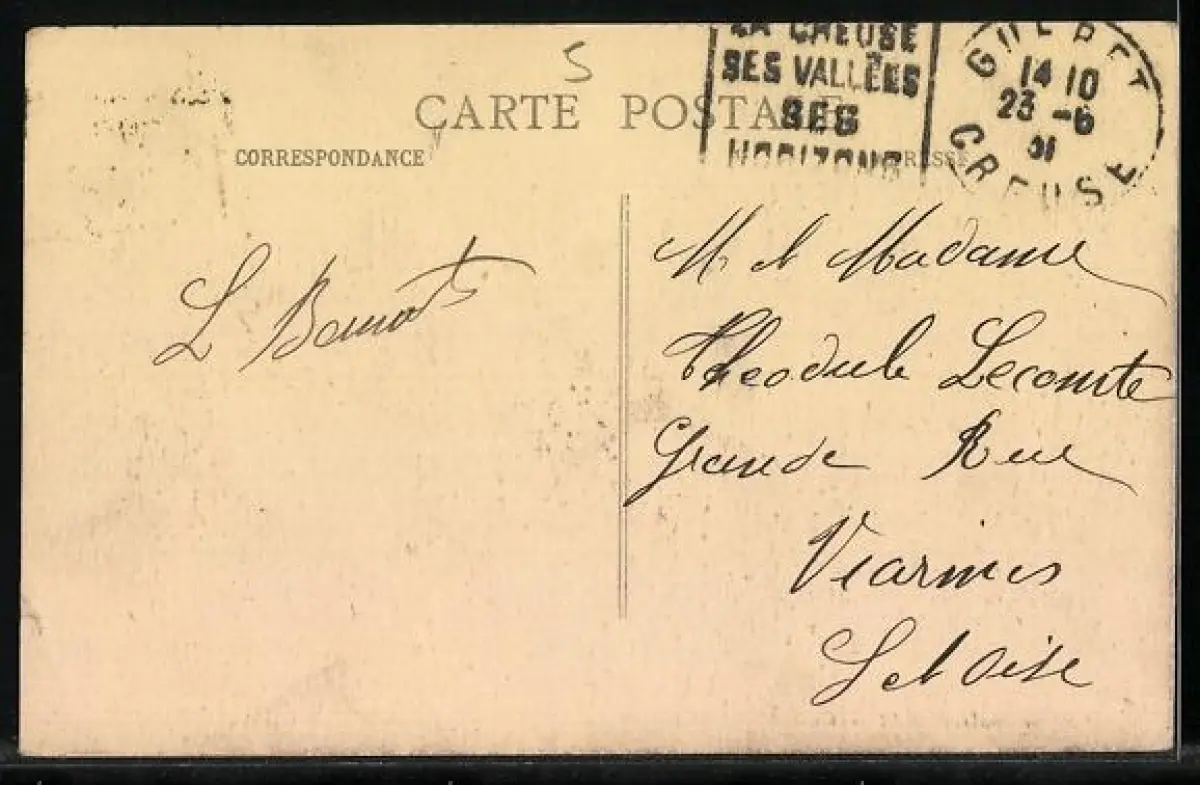 5
LA CREUSE
SES VALLÉES
SES
HORIZONS
GUERET
14 10
23 -6
31
CREUSE
CARTE POSTALE
CORRESPONDANCE
ADRESSE
L
M et Madame
Theodule Lecomte
Grande Rue
Viarmes
S et Oise